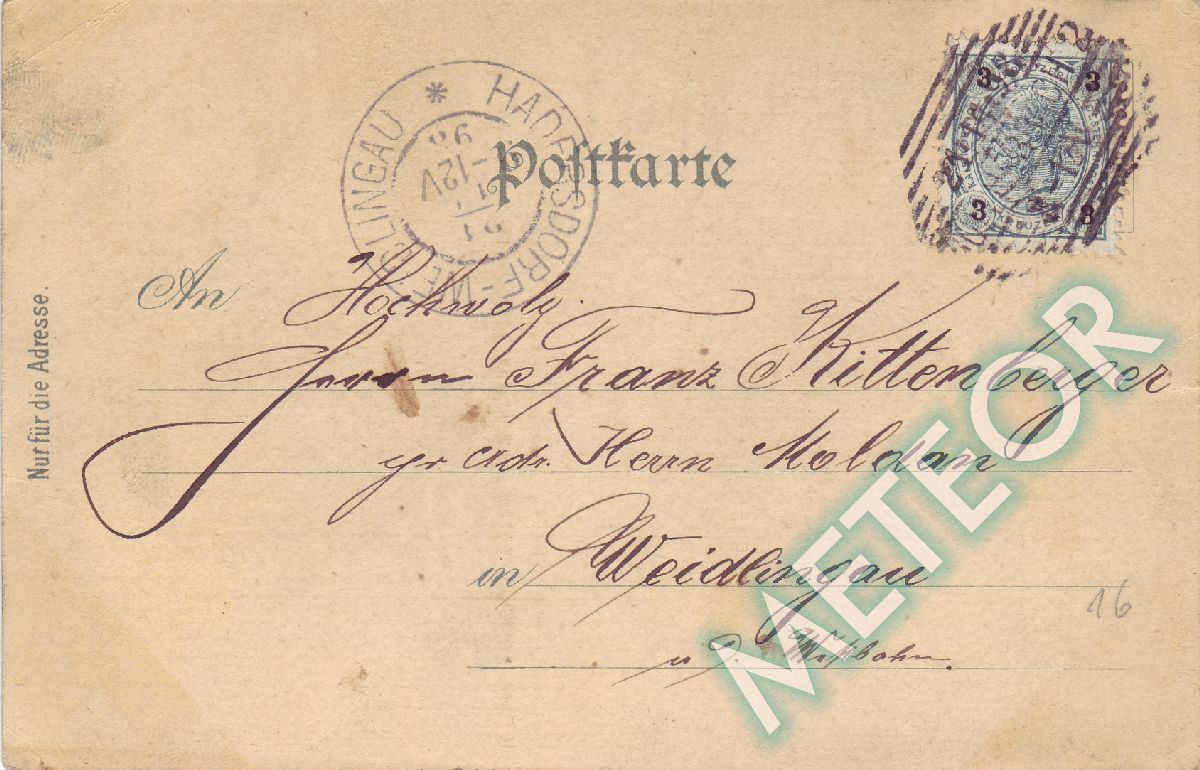 Postkarte
HADERSDORF-WEIDLINGAU *
21/2
-12V
98
3 3
3 3
Nur für die Adresse.
An Hochwolg.
Herrn Franz Kittenberger
Herrn Moldan
in Weidlingau
Westbahn.
16
METEOR